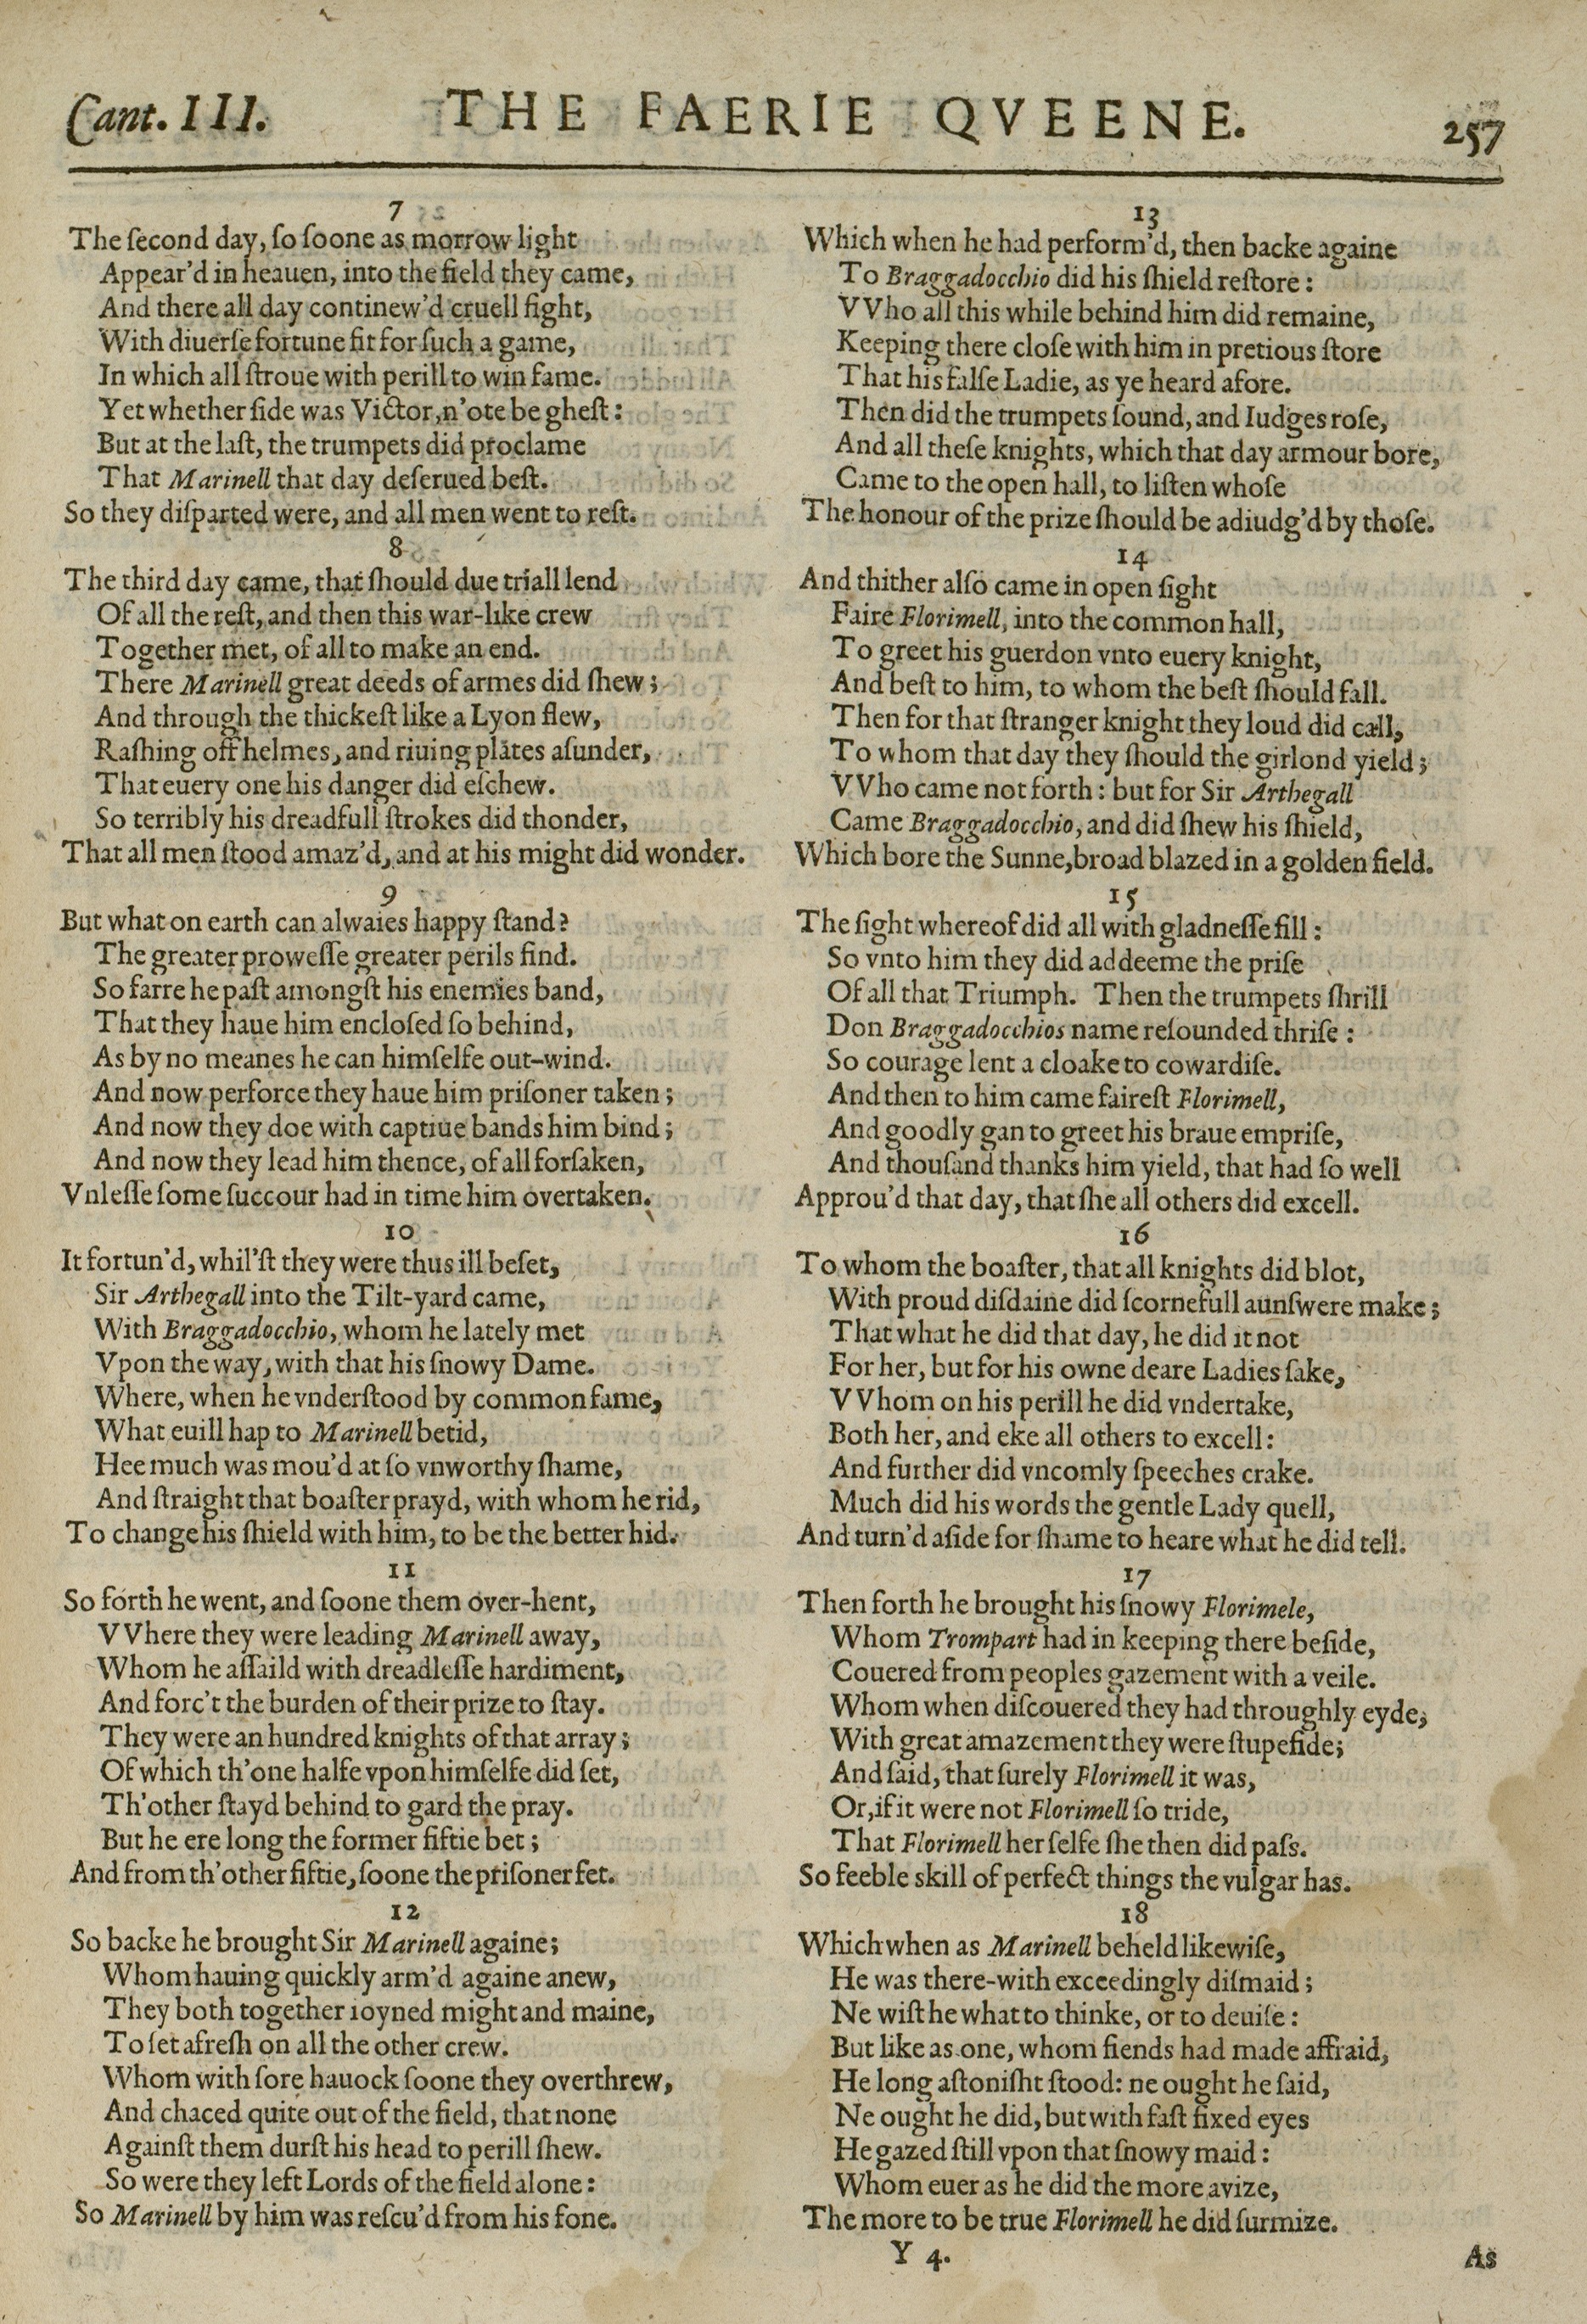 Cant. III.
THE FAERIE QVEENE.
257
7
The ſecond day, ſo ſoone as morrow light
Appear'd in heauen, into the field they came,
And there all day continew'd cruell fight,
With diuerſe fortune fit for ſuch a game,
In which all ſtroue with perill to win fame.
Yet whether ſide was Victor, n'ote be gheſt:
But at the laſt, the trumpets did proclame
That Marinell that day deſerued beſt.
So they diſparted were, and all men went to reſt.
8
The third day came, that ſhould due triall lend
Of all the reſt, and then this war-like crew
Together met, of all to make an end.
There Marinell great deeds of armes did ſhew;
And through the thickeſt like a Lyon flew,
Raſhing off helmes, and riuing plates aſunder,
That euery one his danger did eſchew.
So terribly his dreadfull ſtrokes did thonder,
That all men ſtood amaz'd, and at his might did wonder.
9
But what on earth can alwaies happy ſtand?
The greater proweſſe greater perils find.
So farre he paſt amongſt his enemies band,
That they haue him encloſed ſo behind,
As by no meanes he can himſelfe out-wind.
And now perforce they haue him priſoner taken;
And now they doe with captiue bands him bind;
And now they lead him thence, of all forſaken,
Vnleſſe ſome ſuccour had in time him overtaken.
10
It fortun'd, whil'ſt they were thus ill beſet,
Sir Arthegall into the Tilt-yard came,
With Braggadocchio, whom he lately met
Vpon the way, with that his ſnowy Dame.
Where, when he vnderſtood by common fame,
What euill hap to Marinell betid,
Hee much was mou'd at ſo vnworthy ſhame,
And ſtraight that boaſter prayd, with whom he rid,
To change his ſhield with him, to be the better hid.
11
So forth he went, and ſoone them over-hent,
VVhere they were leading Marinell away,
Whom he aſſaild with dreadleſſe hardiment,
And forc't the burden of their prize to ſtay.
They were an hundred knights of that array;
Of which th'one halfe vpon himſelfe did ſet,
Th'other ſtayd behind to gard the pray.
But he ere long the former fiftie bet;
And from th'other fiftie, ſoone the priſoner fet.
12
So backe he brought Sir Marinell againe;
Whom hauing quickly arm'd againe anew,
They both together ioyned might and maine,
To ſet afreſh on all the other crew.
Whom with ſore hauock ſoone they overthrew,
And chaced quite out of the field, that none
Againſt them durſt his head to perill ſhew.
So were they left Lords of the field alone:
So Marinell by him was reſcu'd from his fone.
13
Which when he had perform'd, then backe againe
To Braggadocchio did his ſhield reſtore:
VVho all this while behind him did remaine,
Keeping there cloſe with him in pretious ſtore
That his falſe Ladie, as ye heard afore.
Then did the trumpets ſound, and Iudges roſe,
And all theſe knights, which that day armour bore,
Came to the open hall, to liſten whoſe
The honour of the prize ſhould be adiudg'd by thoſe.
14
And thither alſo came in open ſight
Faire Florimell, into the common hall,
To greet his guerdon vnto euery knight,
And beſt to him, to whom the beſt ſhould fall.
Then for that ſtranger knight they loud did call,
To whom that day they ſhould the girlond yield;
VVho came not forth: but for Sir Arthegall
Came Braggadocchio, and did ſhew his ſhield,
Which bore the Sunne, broad blazed in a golden field.
15
The ſight whereof did all with gladneſſe fill:
So vnto him they did addeeme the priſe
Of all that Triumph. Then the trumpets ſhrill
Don Braggadocchios name reſounded thriſe:
So courage lent a cloake to cowardiſe.
And then to him came faireſt Florimell,
And goodly gan to greet his braue empriſe,
And thouſand thanks him yield, that had ſo well
Approu'd that day, that ſhe all others did excell.
16
To whom the boaſter, that all knights did blot,
With proud diſdaine did ſcornefull aunſwere make;
That what he did that day, he did it not
For her, but for his owne deare Ladies ſake,
VVhom on his perill he did vndertake,
Both her, and eke all others to excell:
And further did vncomly ſpeeches crake.
Much did his words the gentle Lady quell,
And turn'd aſide for ſhame to heare what he did tell.
17
Then forth he brought his ſnowy Florimele,
Whom Trompart had in keeping there beſide,
Couered from peoples gazement with a veile.
Whom when diſcouered they had throughly eyde,
With great amazement they were ſtupefide;
And ſaid, that ſurely Florimell it was,
Or, if it were not Florimell ſo tride,
That Florimell her ſelfe ſhe then did paſs.
So feeble skill of perfect things the vulgar has.
18
Which when as Marinell beheld likewiſe,
He was there-with exceedingly diſmaid;
Ne wiſt he what to thinke, or to deuiſe:
But like as one, whom fiends had made affraid,
He long aſtoniſht ſtood: ne ought he ſaid,
Ne ought he did, but with faſt fixed eyes
He gazed ſtill vpon that ſnowy maid:
Whom euer as he did the more avize,
The more to be true Florimell he did ſurmize.
Y 4.
As